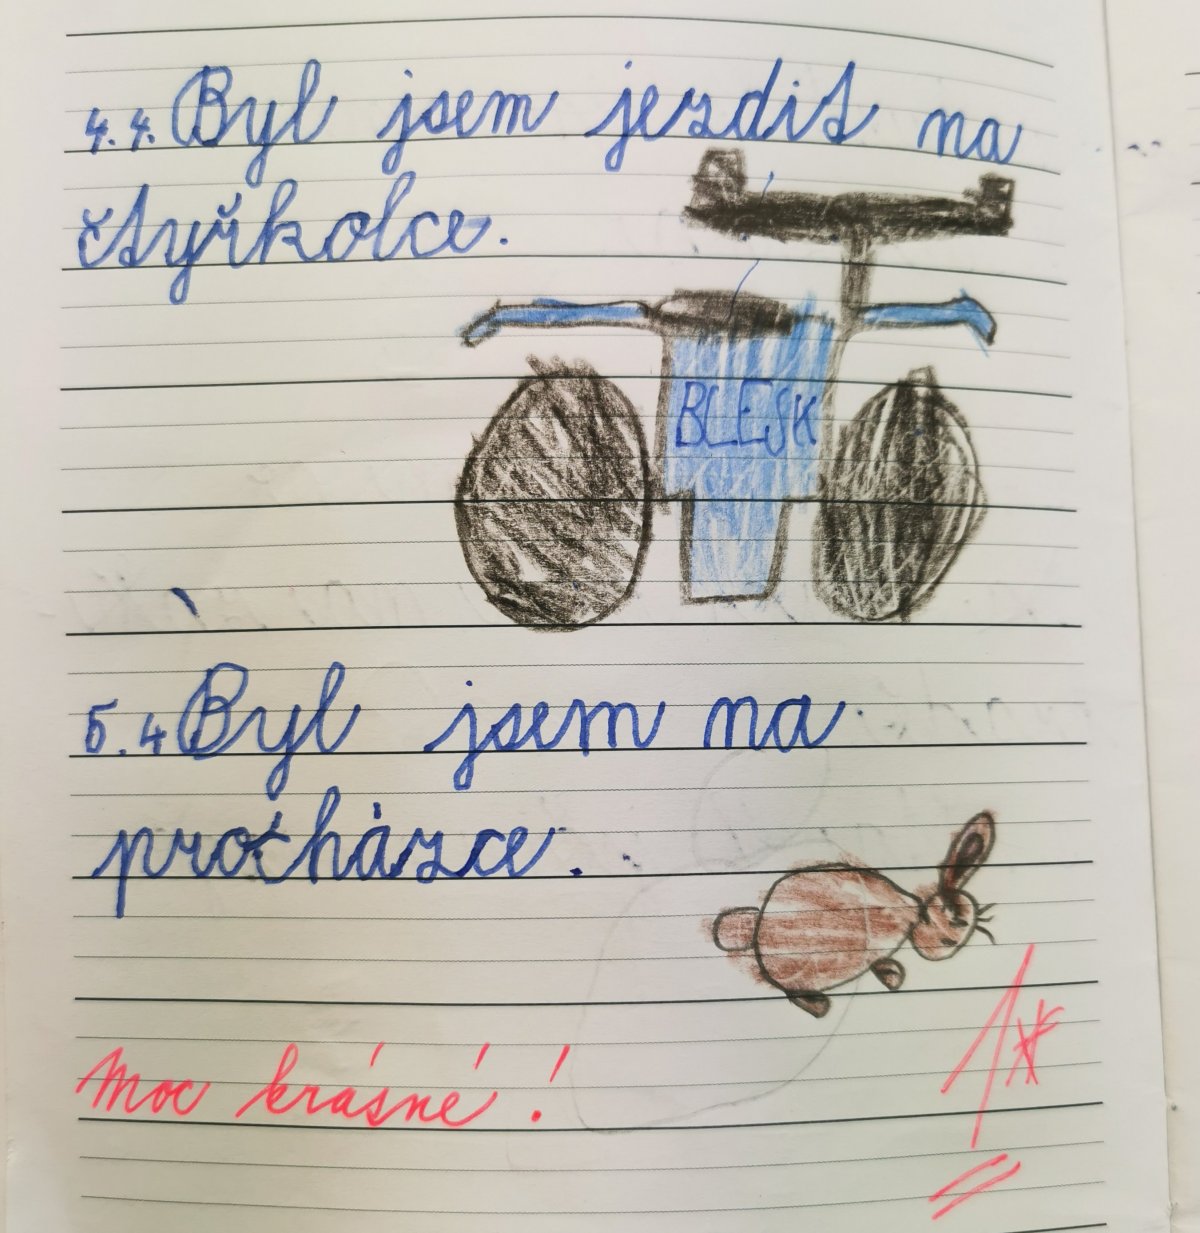 4.4. Byl jsem jezdit na
čtyřkolce.
BLESK
5.4 Byl jsem na
procházce.
Moc krásné!
1*